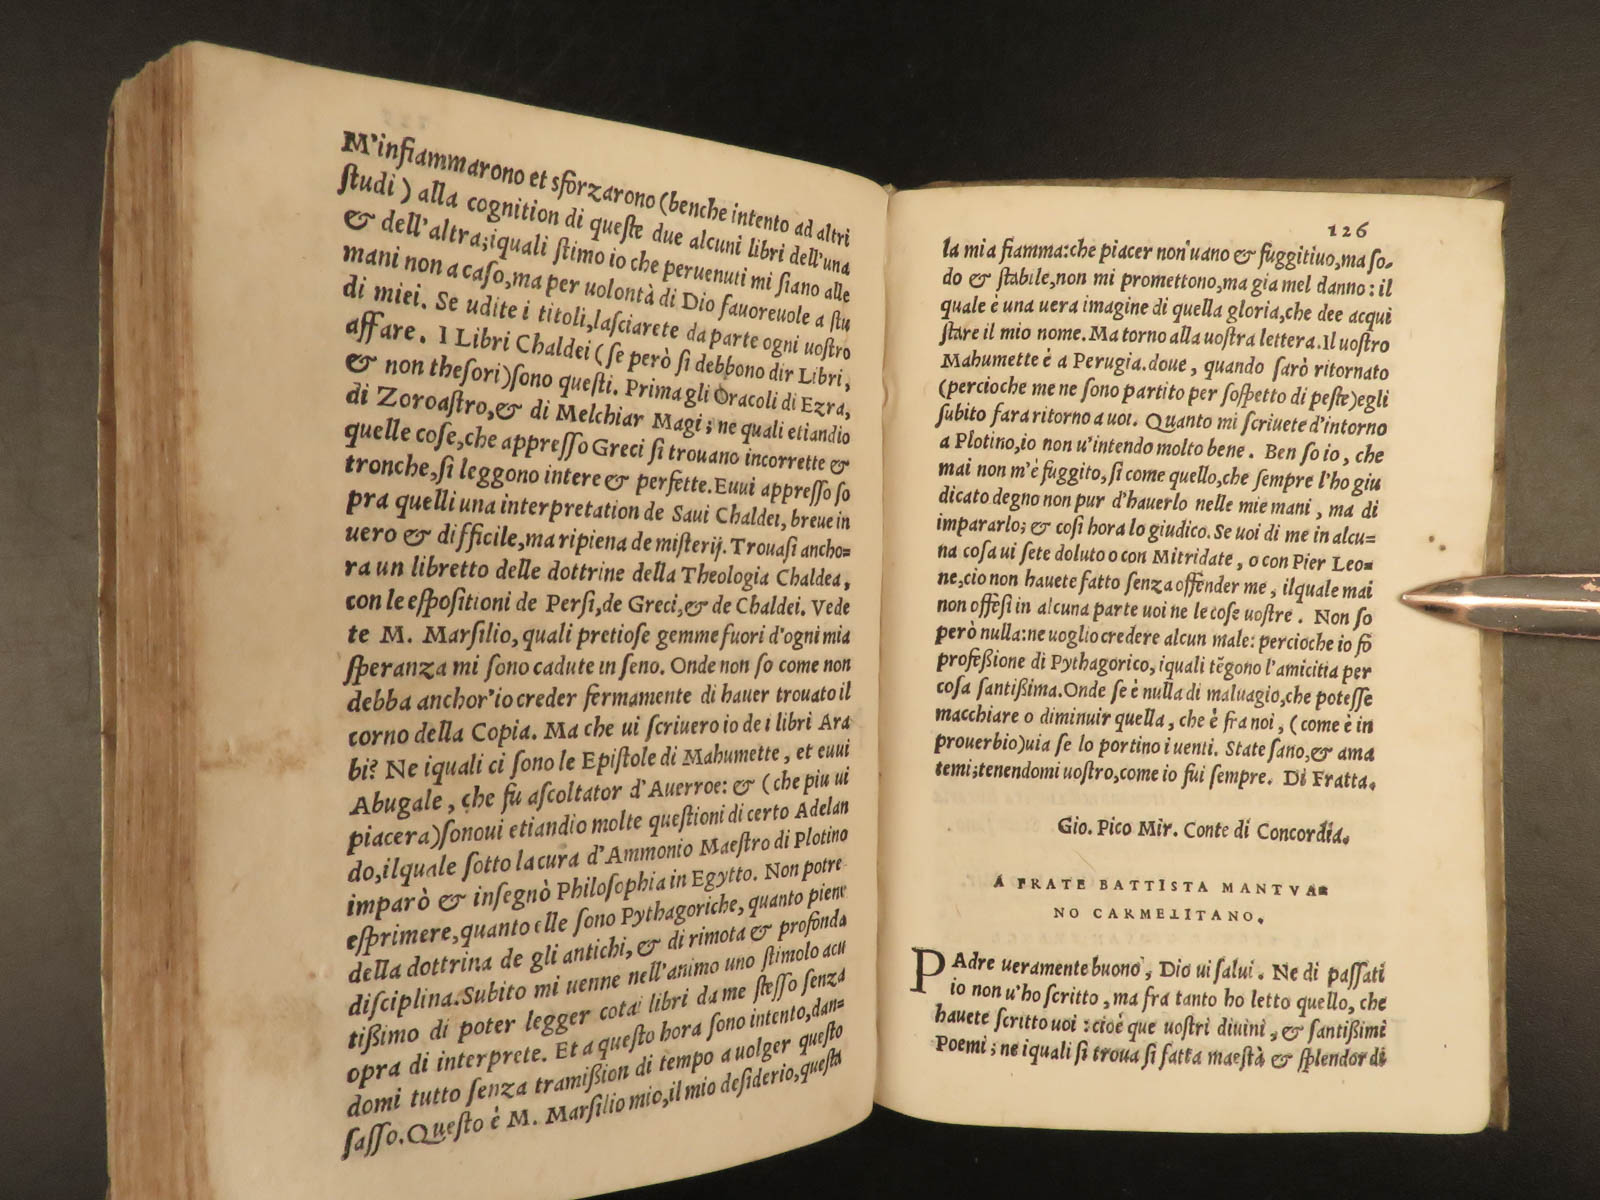 M'infiammarono et sforzarono (benche intento ad altri
ſtudi) alla cognition di queſte due alcuni libri dell'una
& dell'altra; iquali ſtimo io che peruenuti mi ſiano alle
mani non a caſo, ma per uolontà di Dio fauoreuole a ſtu
di miei. Se udite i titoli, laſciarete da parte ogni uoſtro
affare. I Libri Chaldei (ſe però ſi debbono dir Libri,
& non theſori) ſono queſti. Prima gli Oracoli di Ezra,
di Zoroaſtro, & di Melchiar Magi; ne quali etiandio
quelle coſe, che appreſſo Greci ſi trouano incorrette &
tronche, ſi leggono intere & perfette. Euui appreſſo ſo
pra quelli una interpretation de Saui Chaldei, breue in
uero & difficile, ma ripiena de miſterij. Trouaſi ancho=
ra un libretto delle dottrine della Theologia Chaldea,
con le eſpoſitioni de Perſi, de Greci, & de Chaldei. Vede
te M. Marſilio, quali pretioſe gemme fuori d'ogni mia
ſperanza mi ſono cadute in ſeno. Onde non ſo come non
debba anchor'io creder fermamente di hauer trouato il
corno della Copia. Ma che ui ſcriuero io de i libri Ara
bi? Ne iquali ci ſono le Epiſtole di Mahumette, et euui
Abugale, che fu aſcoltator d'Auerroe: & (che piu ui
piacera) ſonoui etiandio molte queſtioni di certo Adelan
do, ilquale ſotto la cura d'Ammonio Maeſtro di Plotino
imparò & inſegnò Philoſophia in Egytto. Non potre
eſprimere, quanto elle ſono Pythagoriche, quanto piene
della dottrina de gli antichi, & di rimota & profonda
diſciplina. Subito mi uenne nell'animo uno ſtimolo acu
tißimo di poter legger cotai libri da me ſteſſo ſenza
opra di interprete. Et a queſto hora ſono intento, dan=
domi tutto ſenza tramißion di tempo a uolger queſto
ſaſſo. Queſto è M. Marſilio mio, il mio deſiderio, queſta
126
la mia fiamma: che piacer non uano & fuggitiuo, ma ſo-
do & ſtabile, non mi promettono, ma gia mel danno: il
quale è una uera imagine di quella gloria, che dee acqui
ſtare il mio nome. Ma torno alla uoſtra lettera. Il uoſtro
Mahumette è a Perugia. doue, quando ſarò ritornato
(percioche me ne ſono partito per ſoſpetto di peſte) egli
ſubito fara ritorno a uoi. Quanto mi ſcriuete d'intorno
a Plotino, io non u'intendo molto bene. Ben ſo io, che
mai non m'è fuggito, ſi come quello, che ſempre l'ho giu
dicato degno non pur d'hauerlo nelle mie mani, ma di
impararlo; & coſi hora lo giudico. Se uoi di me in alcu=
na coſa ui ſete doluto o con Mitridate, o con Pier Leo=
ne, cio non hauete fatto ſenza offender me, ilquale mai
non offeſi in alcuna parte uoi ne le coſe uoſtre. Non ſo
però nulla: ne uoglio credere alcun male: percioche io fo
profeßione di Pythagorico, iquali tẽgono l'amicitia per
coſa ſantißima. Onde ſe è nulla di maluagio, che poteſſe
macchiare o diminuir quella, che è fra noi, (come è in
prouerbio) uia ſe lo portino i uenti. State ſano, & ama
temi; tenendomi uoſtro, come io fui ſempre. Di Fratta.
Gio. Pico Mir. Conte di Concordia.
A FRATE BATTISTA MANTVA=
NO CARMELITANO.
PAdre ueramente buono, Dio ui ſalui. Ne di paſſati
io non u'ho ſcritto, ma fra tanto ho letto quello, che
hauete ſcritto uoi: cioè que uoſtri diuini, & ſantißimi
Poemi; ne iquali ſi troua ſi fatta maeſtà & ſplendor di